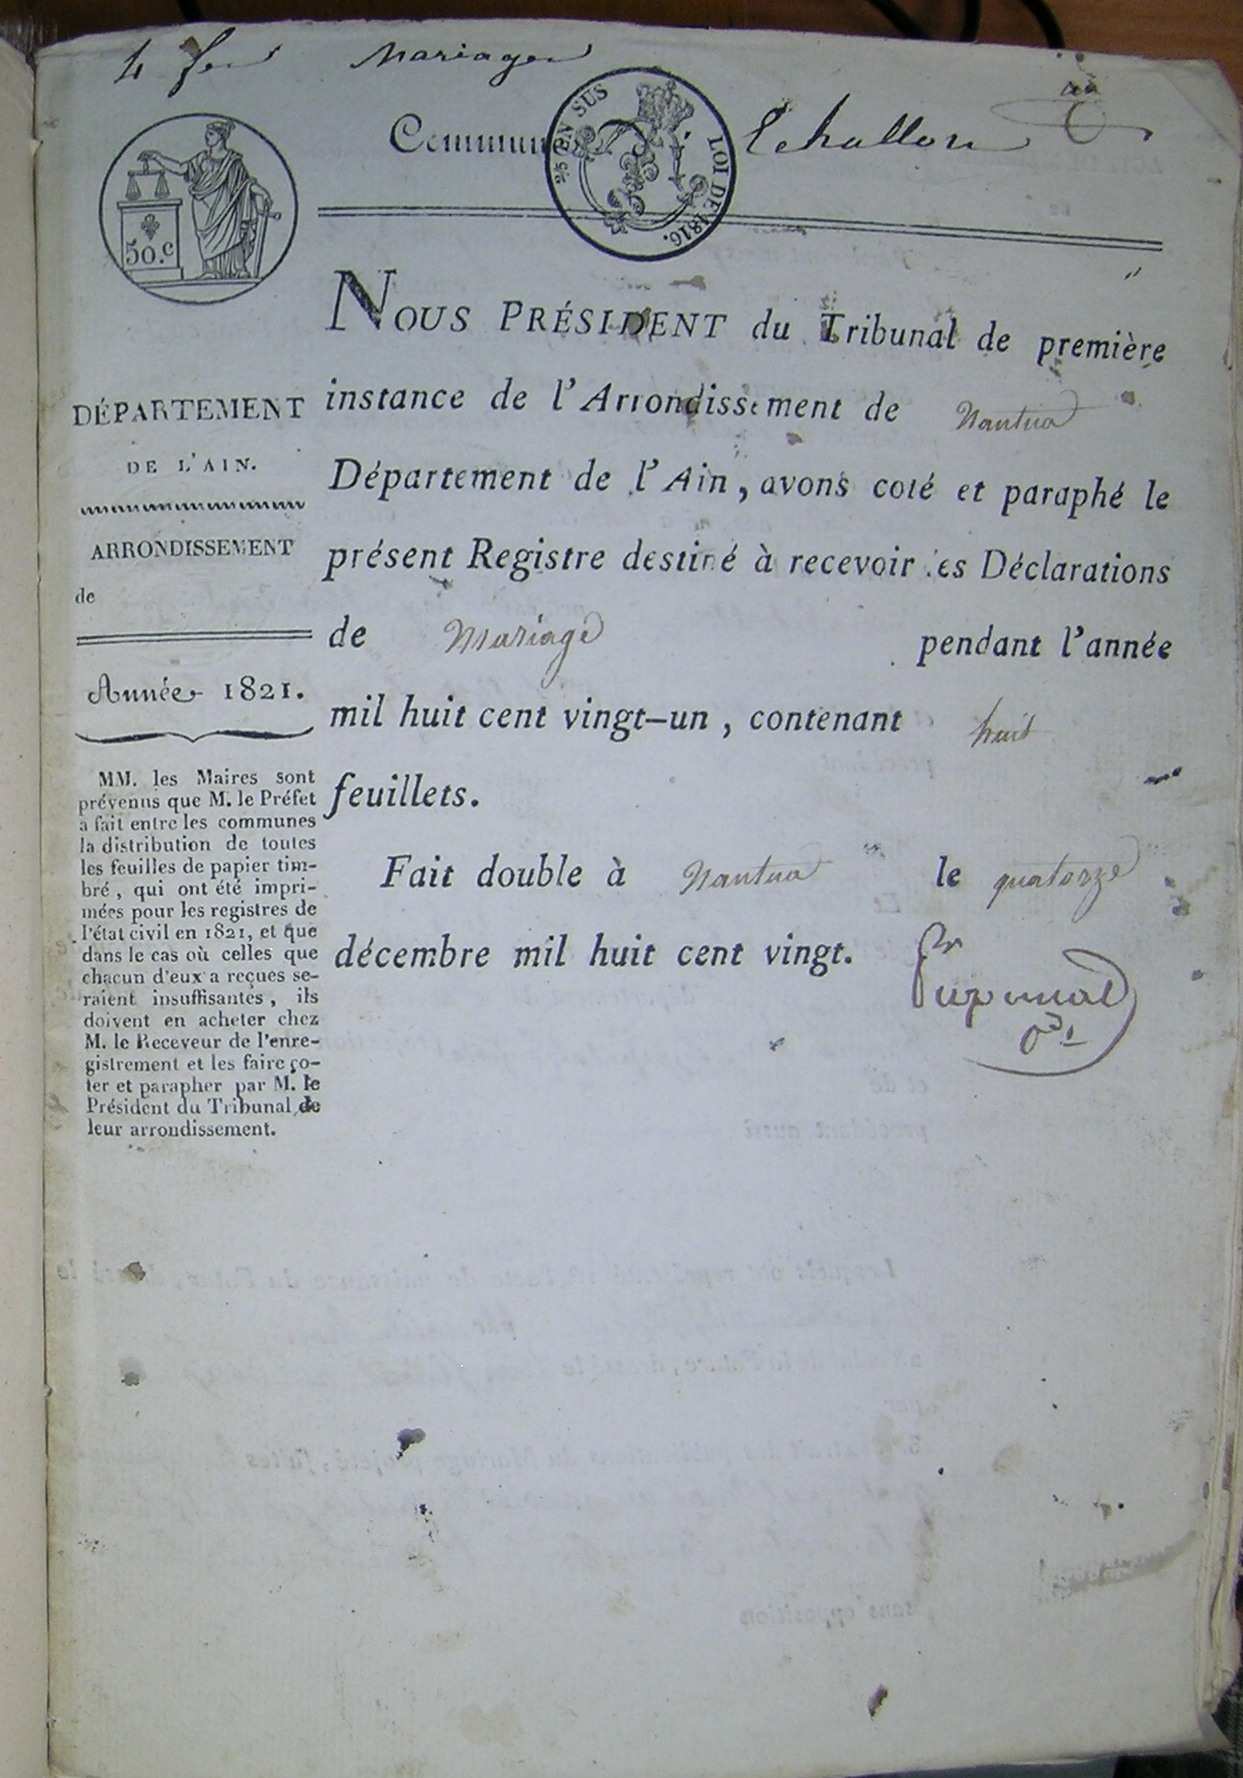 4 Mariages
Commune Echallon
25 EN SUS
LOI DE 1816.
50.c
NOUS PRÉSIDENT du Tribunal de première
instance de l'Arrondissement de Nantua
Département de l'Ain, avons coté et paraphé le
présent Registre destiné à recevoir les Déclarations
de Mariage pendant l'année
mil huit cent vingt-un, contenant huit
feuillets.
Fait double à Nantua le quatorze
décembre mil huit cent vingt.
DÉPARTEMENT
DE L'AIN.
ARRONDISSEMENT
de
Année 1821.
MM. les Maires sont
prévenus que M. le Préfet
a fait entre les communes
la distribution de toutes
les feuilles de papier tim-
bré, qui ont été impri-
mées pour les registres de
l'état civil en 1821, et que
dans le cas où celles que
chacun d'eux a reçues se-
raient insuffisantes, ils
doivent en acheter chez
M. le Receveur de l'enre-
gistrement et les faire co-
ter et parapher par M. le
Président du Tribunal de
leur arrondissement.